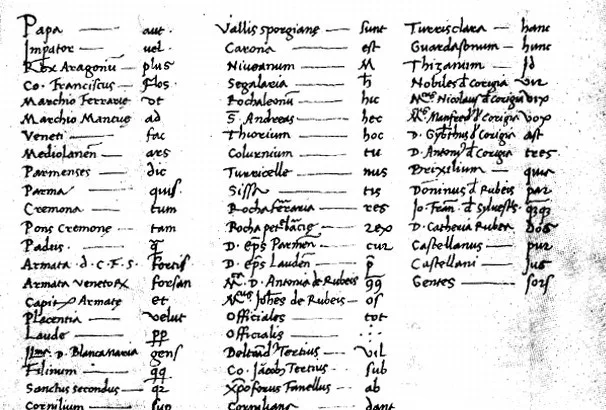 Papa — aut.
Impator — vel.
Rex Aragonu — plus
Co. Franciscus — flos
Marchio Ferrarie — ut
Marchio Mantue — ad
Veneti — fac
Mediolanen — ars
Parmenses — dic
Parma — quis
Cremona — tum
Pons Cremone — tam
Padus.
Armata. d. C. F. S. fortis
Armata Veneto forsan
Capit Armate et
Placentia — velut
Laude — pp
D. Blanca Maria gens
Filinum — qq
Sanctus secundus —
Cornilium — sup
Vallis sporgiane — sunt
Carona — est
Niveanum — M
Segalaria — h
Rochaleonu — hic
S. Andreas — hec
Thurium — hoc
Colurnium — tu
Turricelle — nus
Sissa — tis
Rocha ferraria — res
Rocha — rex
D. eps Parmen — cur
D. eps Lauden — p
D. Antonia de Rubeis qq
Johes de Rubeis — os
Officiales — tot
Officialis —
Tertius — vil
Co. Jacob Tertius — sub
Xpoforus Fanellus — ab
Cornilianus — dant
Turrisclara — hanc
Guardasonum — hunc
Thizanum — Id
Nobiles d Corigia vir
Nicolaus d Corigia vix
Manfred d Corigia vox
D. d Corigia ast
D. Antoni d Corigia tres
Brixilium — quia
Dominus d Rubeis par
Jo. Fran. d
D. Catherina Rubea bos
Castellanus — pur
Castellani — jus
Gentes — sors